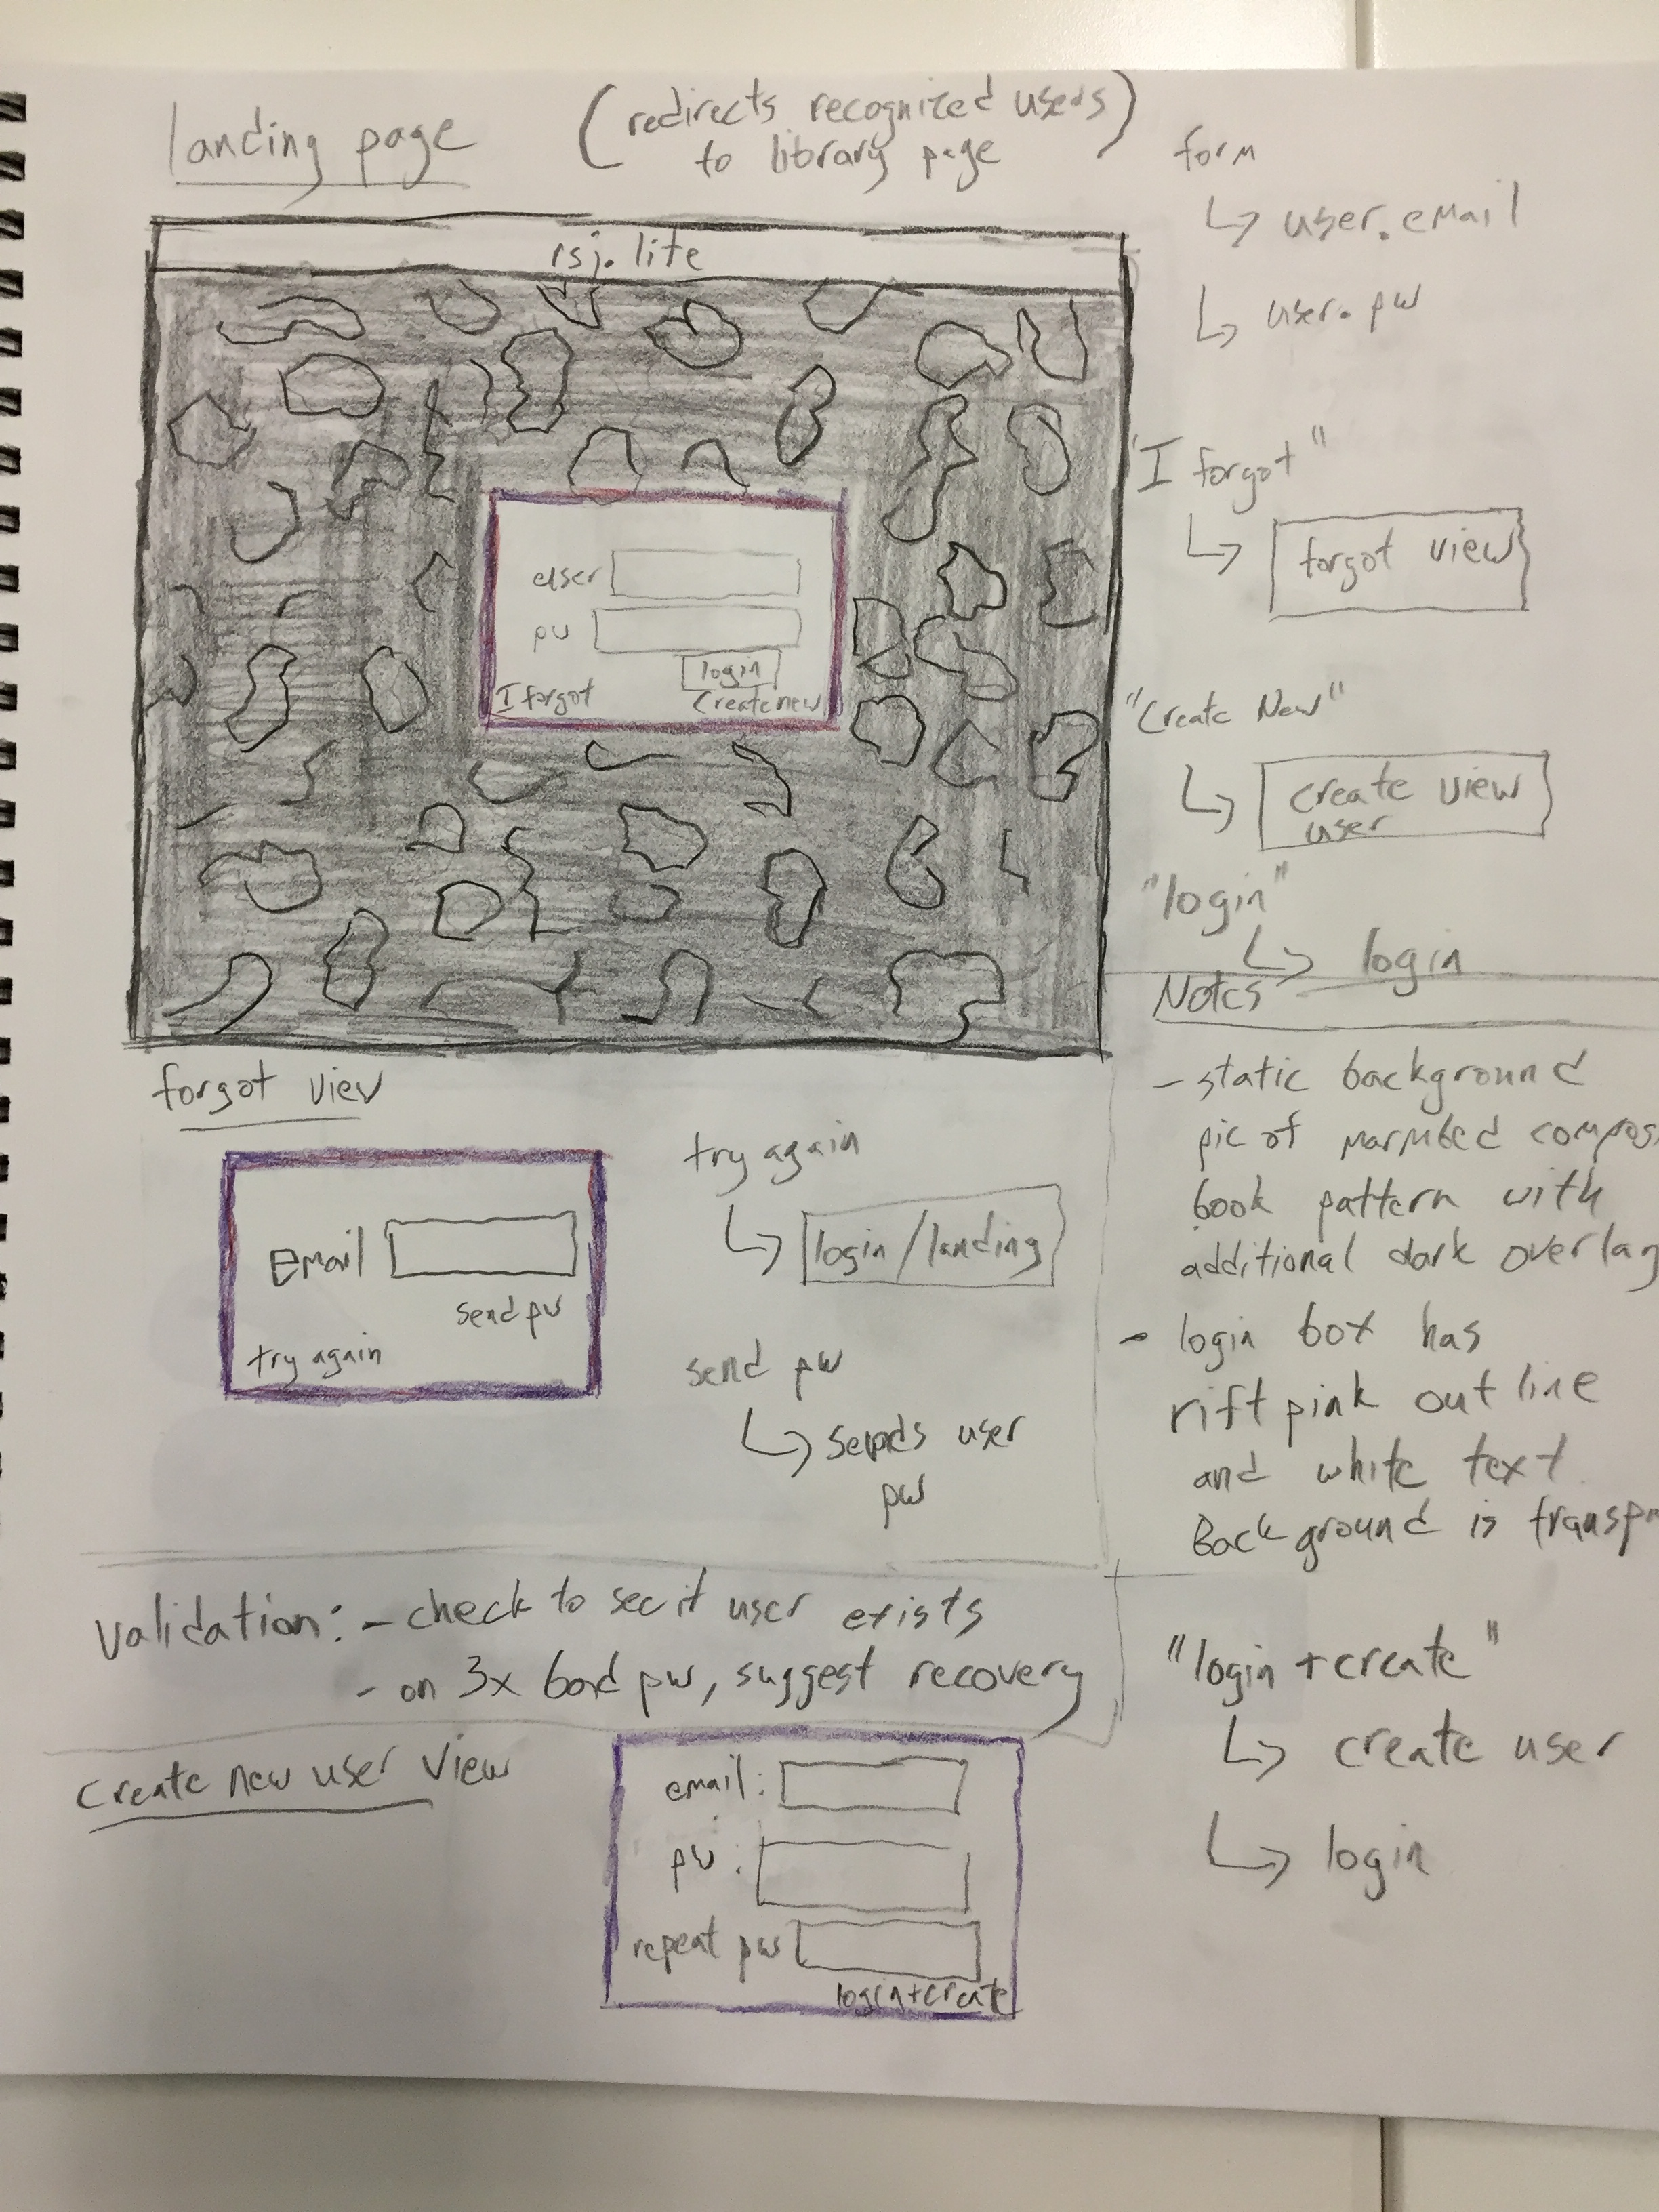 landing page
(redirects recognized users)
to library page
form
↳ user.email
↳ user.pw
rsj.lite
user
pw
login
I forgot
Create new
"I forgot"
↳ forgot view
"Create New"
↳ create view
user
"login"
↳ login
Notes
- static background
pic of marbled compos
book pattern with
additional dark overlay
- login box has
rift pink outline
and white text
Background is transp
forgot view
email
send pw
try again
try again
↳ login/landing
send pw
↳ sends user
pw
Validation: - check to see if user exists
- on 3x bad pw, suggest recovery
Create new user view
email:
pw:
repeat pw
login+create
"login + create"
↳ create user
↳ login